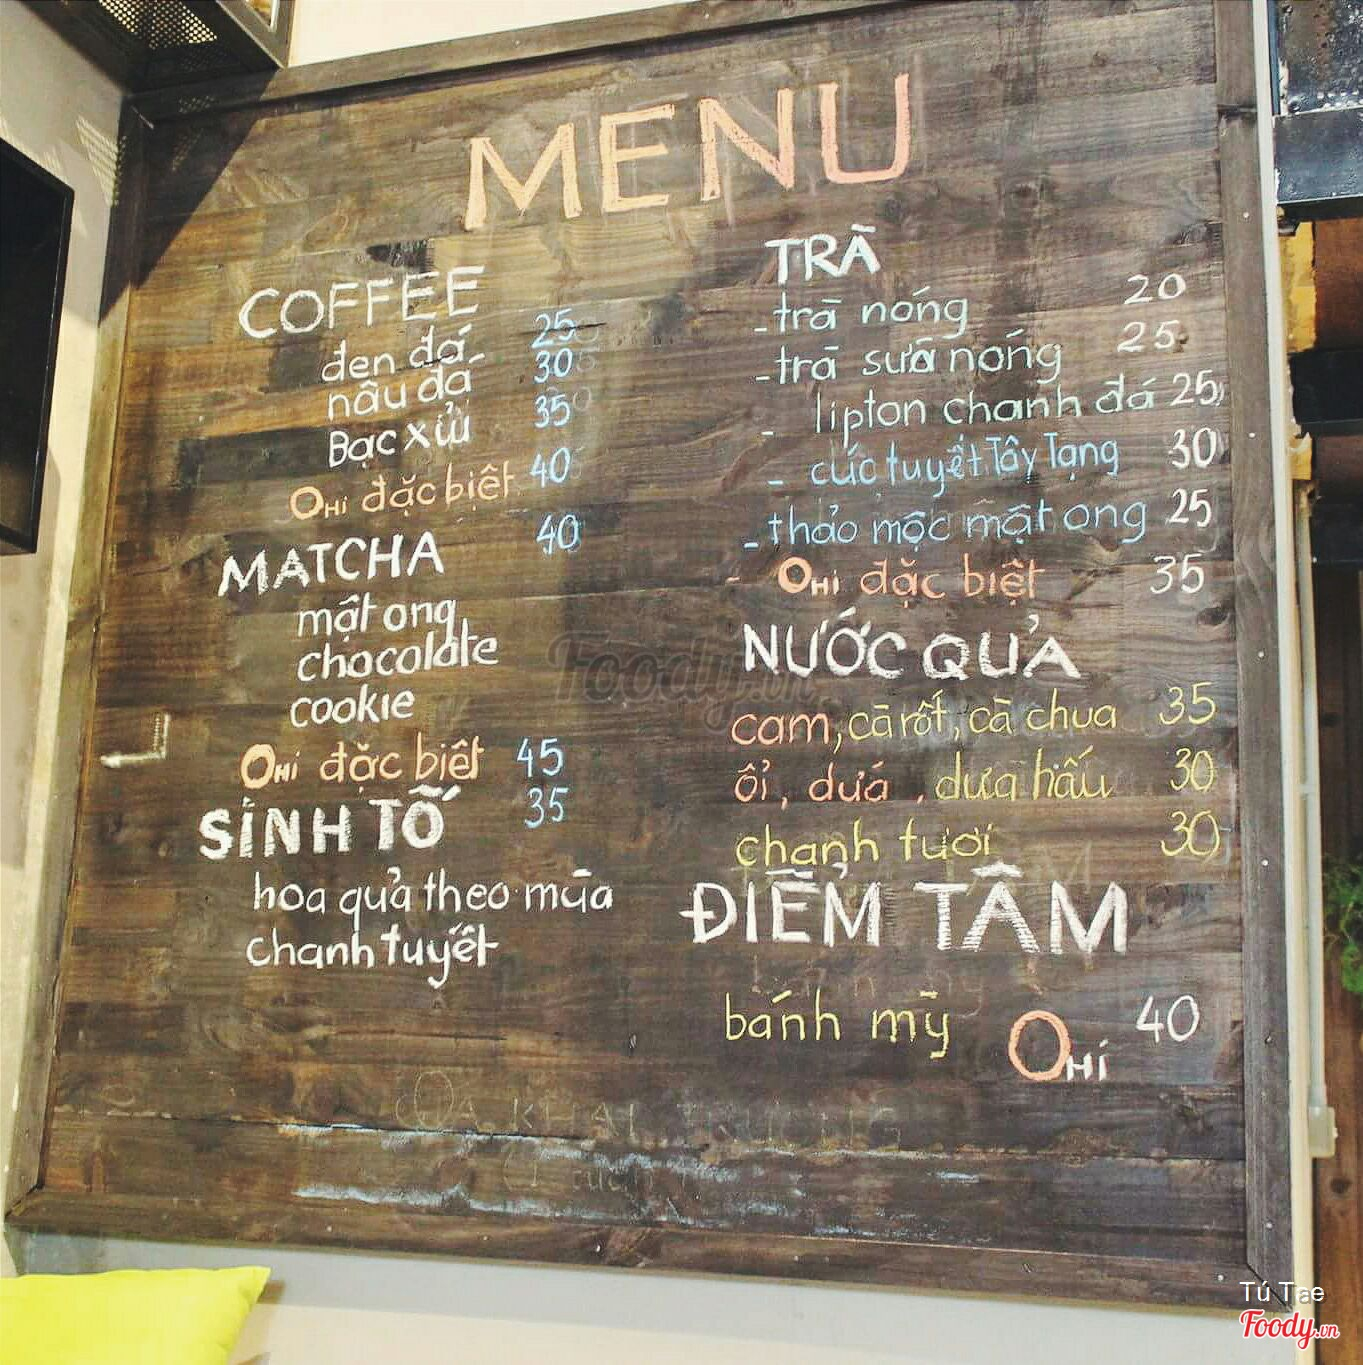 MENU
COFFEE
đen đá 25
nâu đá 30
Bạc xỉu 35
OHI đặc biệt 40
MATCHA 40
mật ong
chocolate
cookie
OHI đặc biệt 45
SINH TỐ 35
hoa quả theo mùa
chanh tuyết
TRÀ
- trà nóng 20
- trà sữa nóng 25
- lipton chanh đá 25
- cúc tuyết Tây Tạng 30
- thảo mộc mật ong 25
- OHI đặc biệt 35
NƯỚC QUẢ
cam, cà rốt, cà chua 35
ổi, dứa, dưa hấu 30
chanh tươi 30
ĐIỂM TÂM
bánh mỳ OHI 40
Foody.vn
Tú Tae
Foody.vn